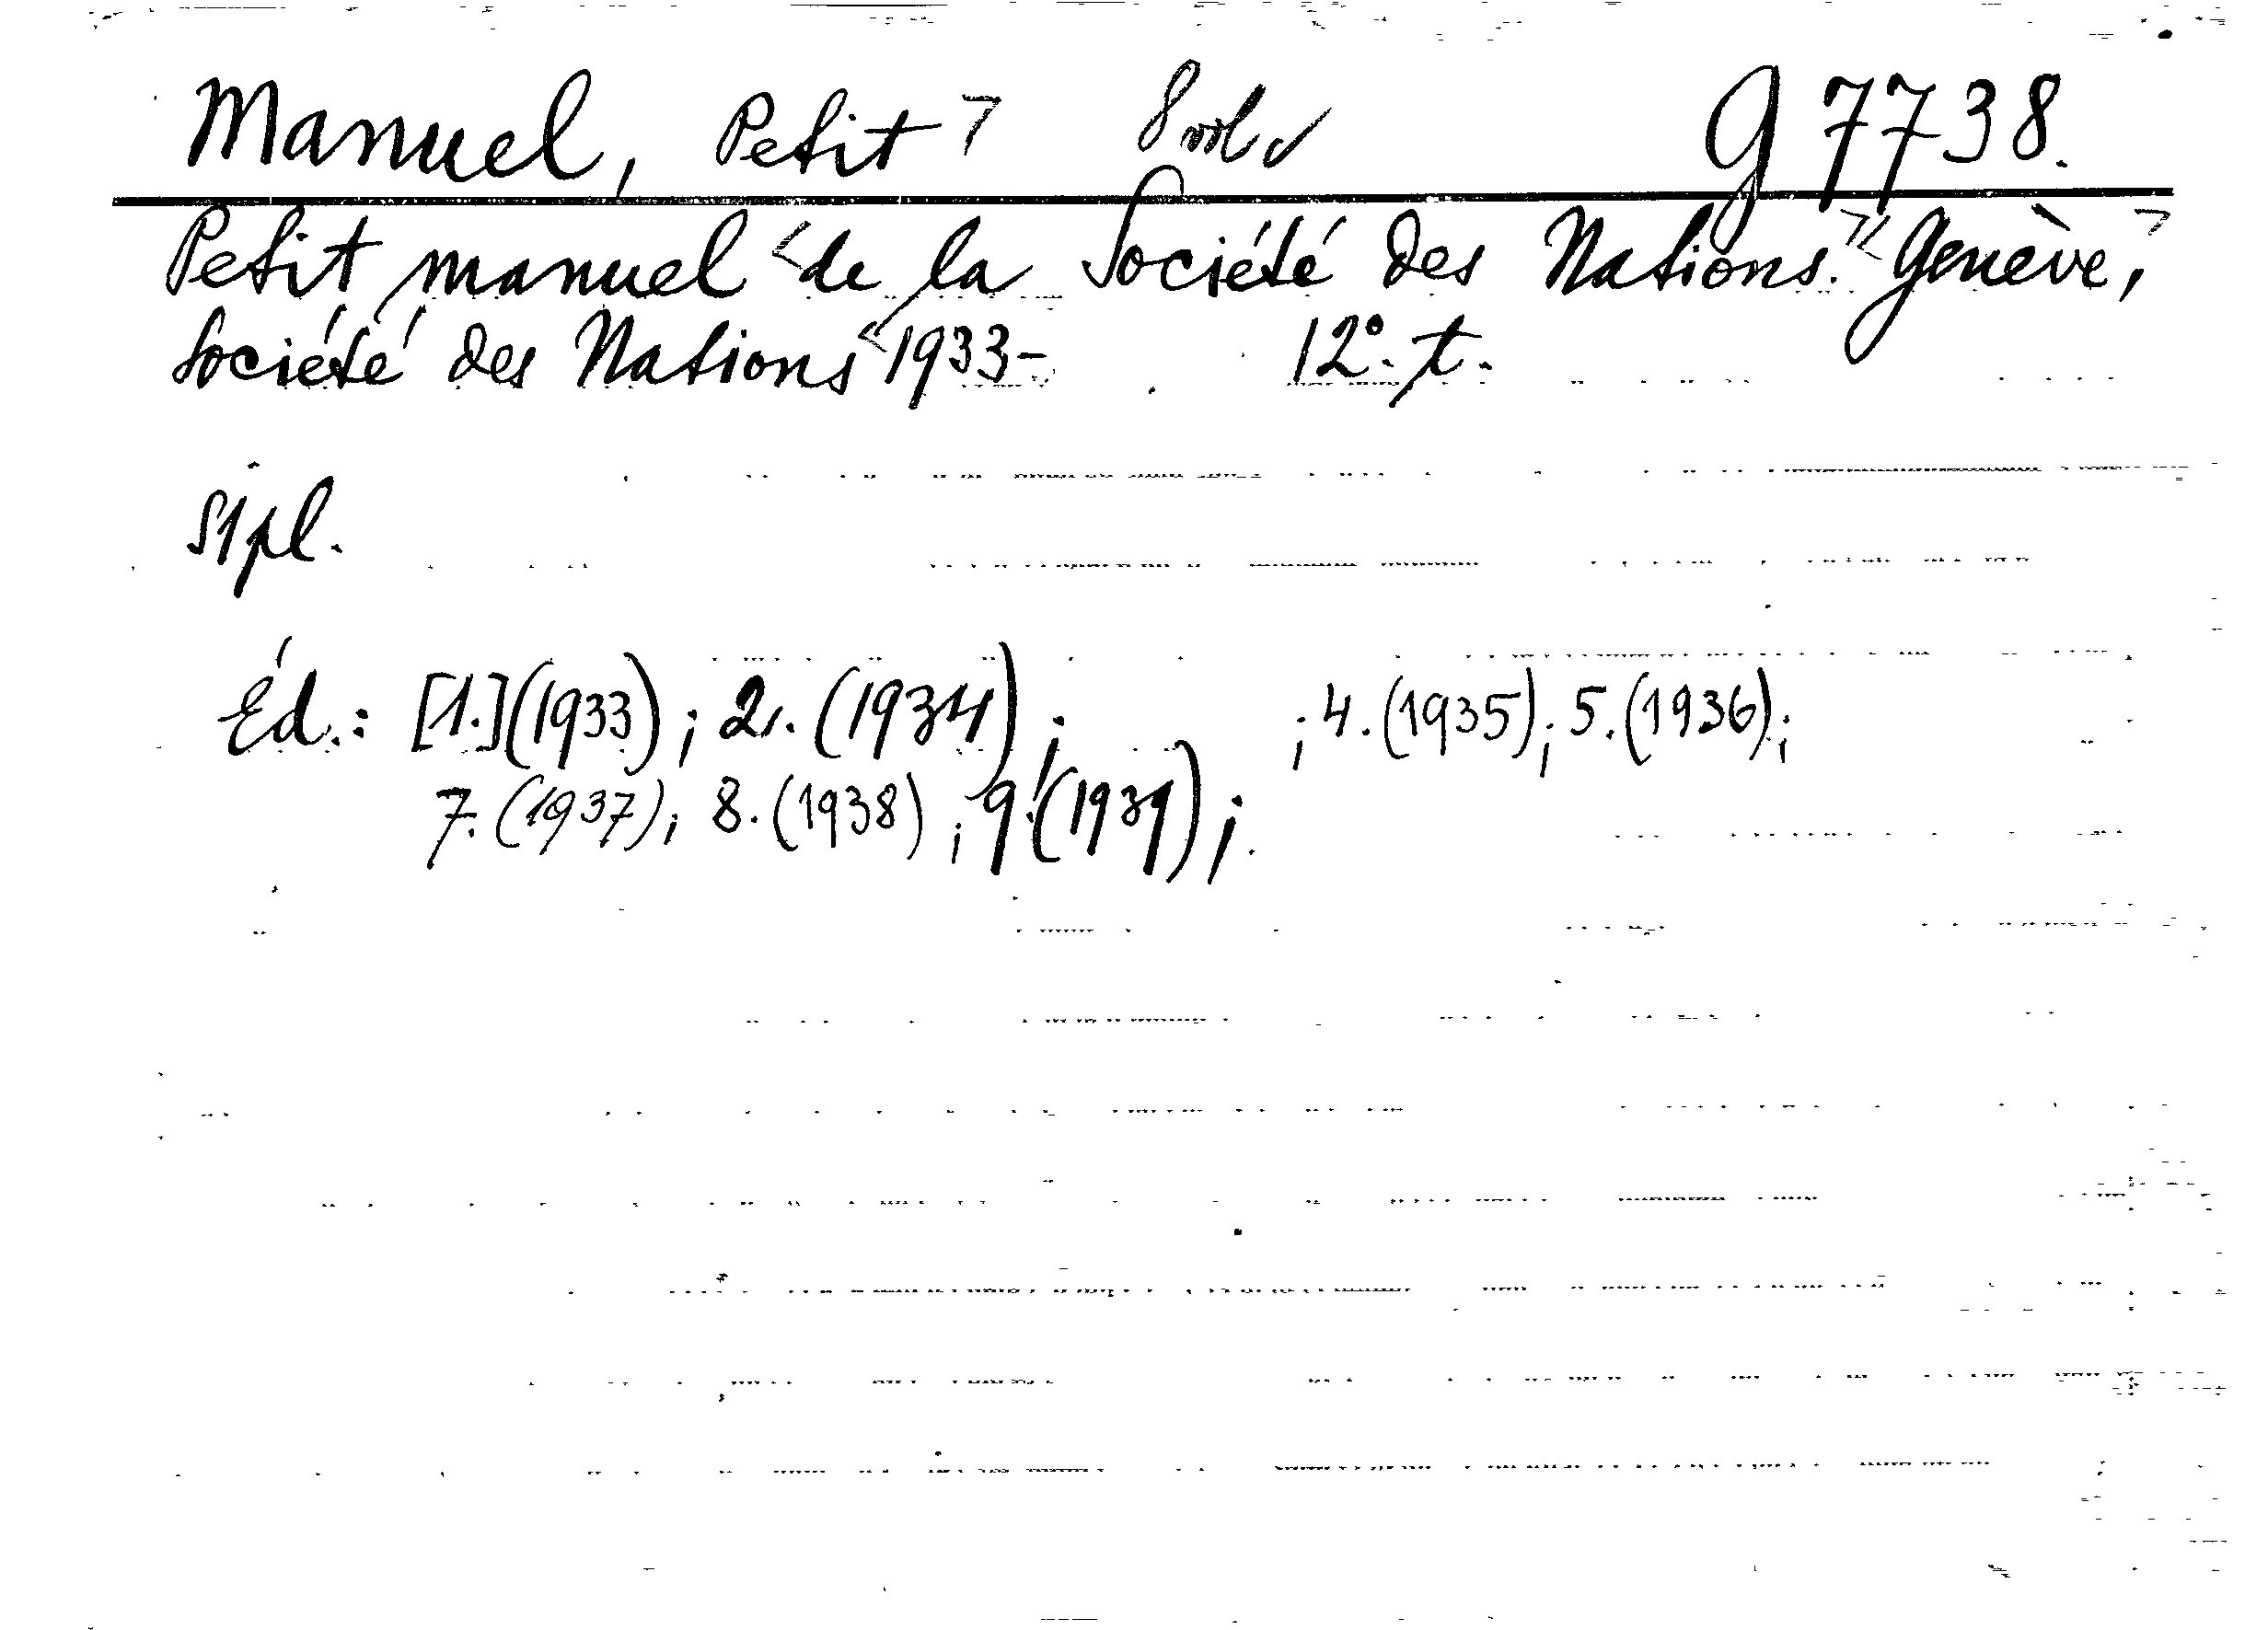 Manuel, Petit ⁊ 8 vol ✓ G 7738.
Petit manuel <de la Société des Nations.> <Genève,>
Société des Nations <1933- . 12°. t.
Éd.: [1.](1933); 2. (1934); ; 4. (1935); 5. (1936);
7. (1937); 8. (1938); 9. (1939);